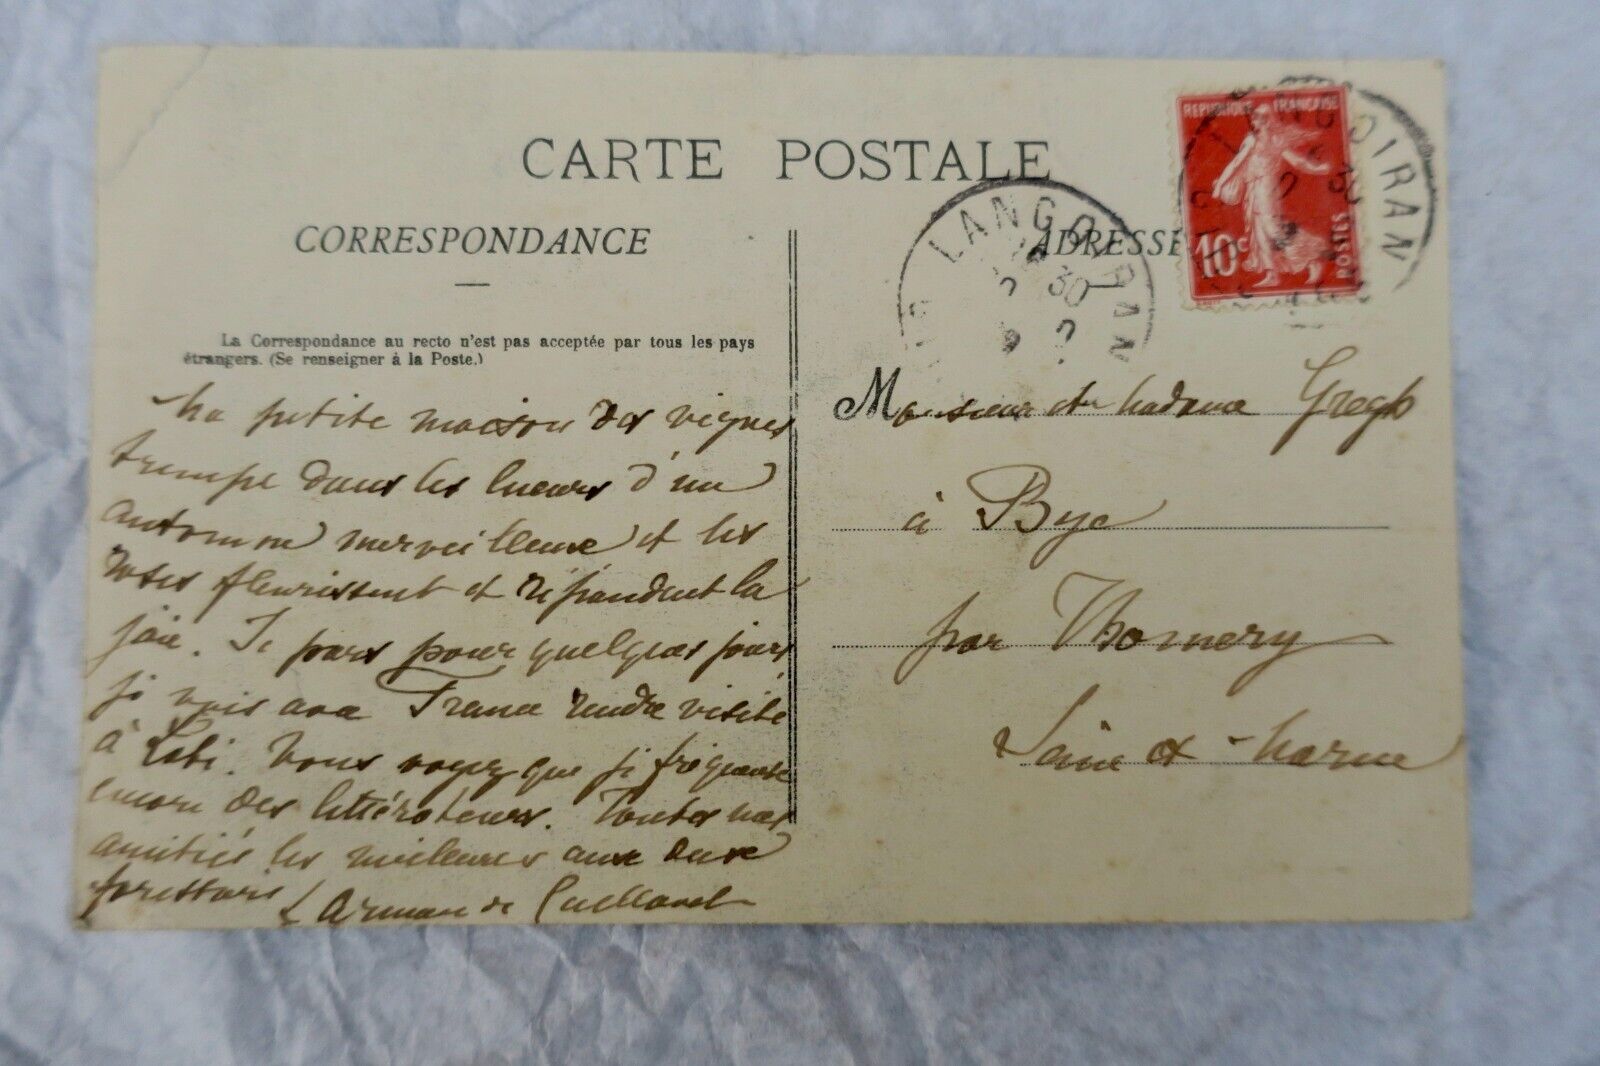 CARTE POSTALE
CORRESPONDANCE
ADRESSE
La Correspondance au recto n'est pas acceptée par tous les pays
étrangers. (Se renseigner à la Poste.)
REPUBLIQUE FRANÇAISE
10c
POSTES
LANGOIRAN
LANGOIRAN
30
Ma petite maison des vignes
trempe dans les lueurs d'un
automne merveilleux et les
roses fleurissent et répandent la
joie. Je pars pour quelques jours
je vais avec France rendre visite
à Loti. Vous voyez que je fréquente
encore des littérateurs. Toutes nos
amitiés les meilleures aux deux
forestiers L Arman de Caillavet
Monsieur et Madame Gregh
à Bye
par Thomery
Seine et Marne